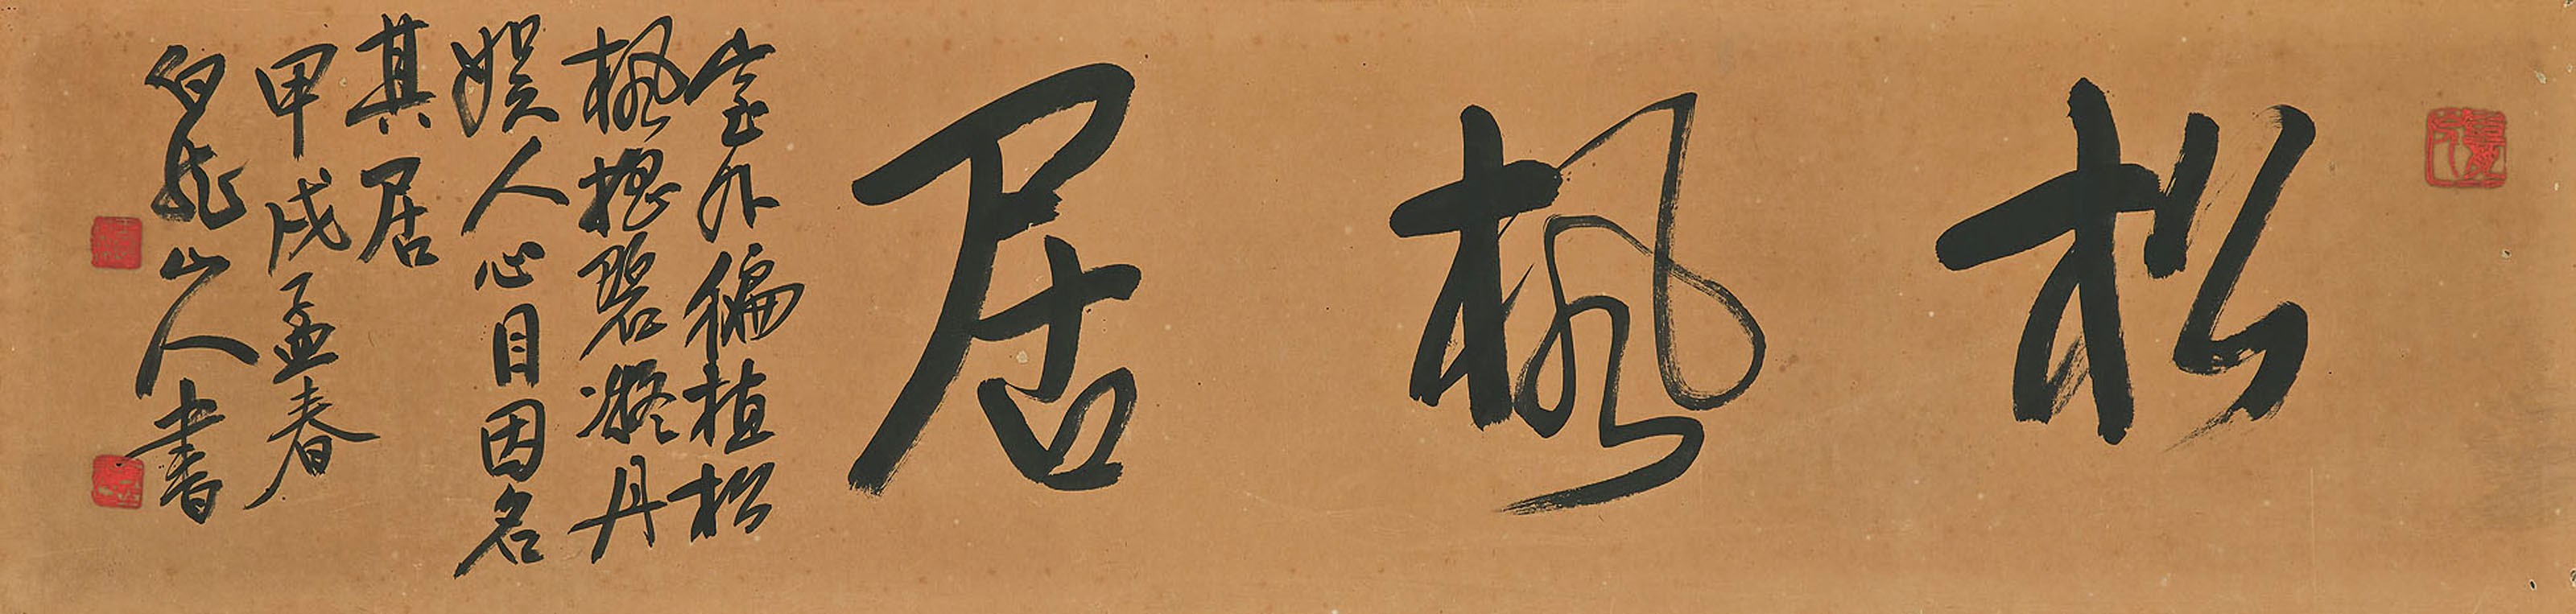 松楓居
室外徧植松
楓挹碧凝丹
娛人心目因名
其居
甲戌孟春
白龍山人書